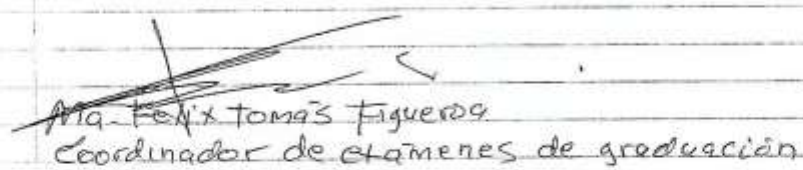 Ma. Felix Tomás Figueroa
Coordinador de exámenes de graduación